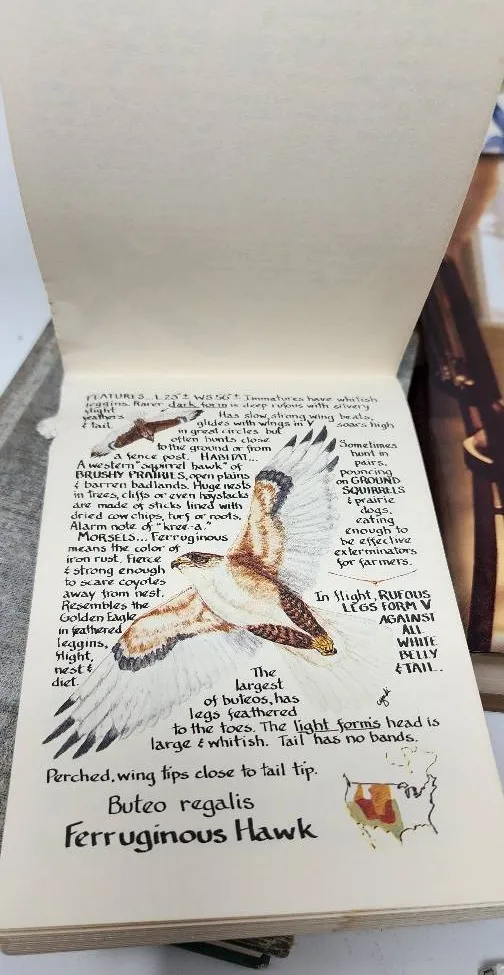 FEATURES... L 23"± WS 56"± Immatures have whitish
leggins. Rarer dark form is deep rufous with silvery
flight
feathers
& tail.
Has slow, strong wing beats,
glides with wings in V soars high
in great circles but
often hunts close
to the ground or from
a fence post. HABITAT...
A western "squirrel hawk" of
BRUSHY PRAIRIES, open plains
& barren badlands. Huge nests
in trees, cliffs or even haystacks
are made of sticks lined with
dried cow chips, turf or roots.
Alarm note of "kree-a."
MORSELS... Ferruginous
means the color of
iron rust. Fierce
& strong enough
to scare coyotes
away from nest.
Resembles the
Golden Eagle
in feathered
leggins,
flight,
nest &
diet.
Sometimes
hunt in
pairs,
pouncing
on GROUND
SQUIRRELS
& prairie
dogs,
eating
enough to
be effective
exterminators
for farmers.
In flight, RUFOUS
LEGS FORM V
AGAINST
ALL
WHITE
BELLY
& TAIL..
The
largest
of buteos, has
legs feathered
to the toes. The light form's head is
large & whitish. Tail has no bands.
Perched, wing tips close to tail tip.
Buteo regalis
Ferruginous Hawk